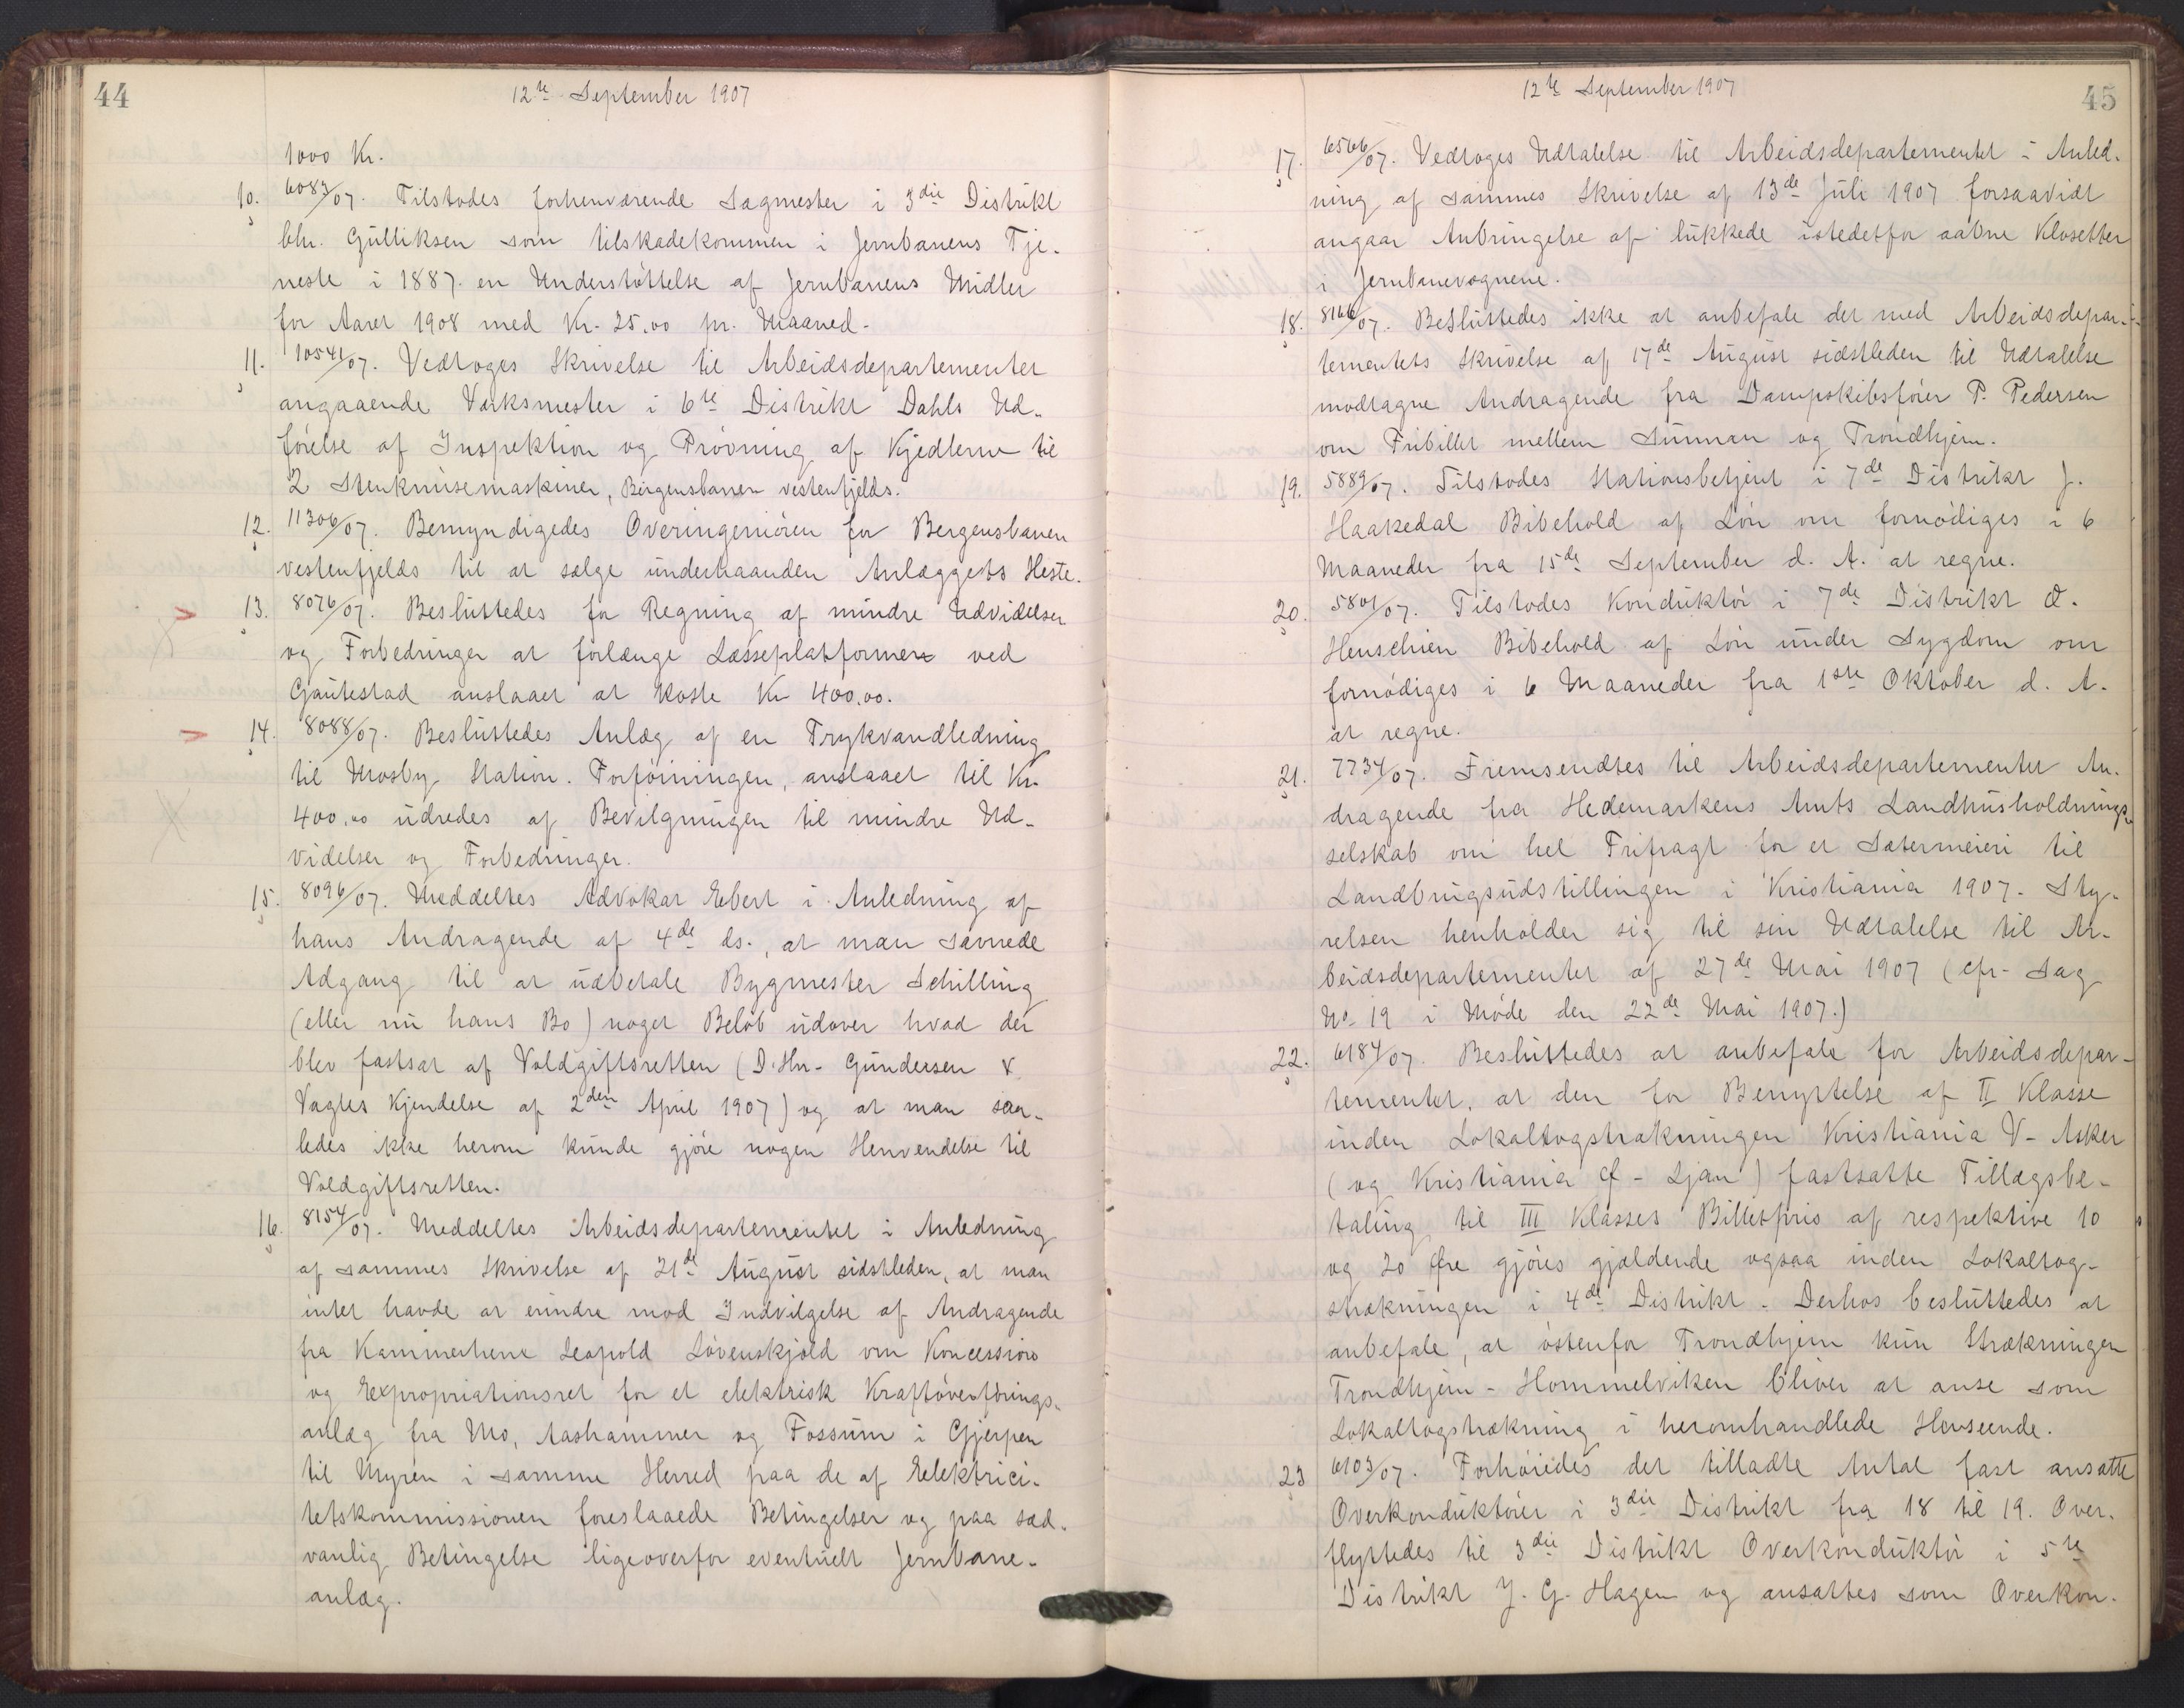 44
12te September 1907
1000 Kr.
10. 6083/07. Tilstodes forhenværende Sagmester i 3die Distrikt
Chr. Gulliksen som tilskadekommen i Jernbanens Tje-
neste i 1887 en Understøttelse af Jernbanens Midler
for Aaret 1908 med Kr. 25.00 pr. Maaned.
11. 10541/07. Vedtoges Skrivelse til Arbeidsdepartementet
angaaende Værksmester i 6te Distrikt Dahls Ud-
førelse af Inspektion og Prøvning af Kjedlerne til
2 Stenknusemaskiner, Bergensbanen vestenfjelds.
12. 11306/07. Bemyndigedes Overingeniøren for Bergensbanen
vestenfjelds til at sælge underhaanden Anlæggets Heste.
13. 8076/07. Besluttedes for Regning af mindre Udvidelser
og Forbedringer at forlænge Læsseplatformen ved
Gautestad anslaaet at koste Kr 400.00.
14. 8088/07. Besluttedes Anlæg af en Trykvandledning
til Mosby Station. Forføiningen, anslaaet til Kr.
400.00 udredes af Bevilgningen til mindre Ud-
videlser og Forbedringer.
15. 8096/07. Meddeltes Advokat Ebert i Anledning af
hans Andragende af 4de ds., at man savnede
Adgang til at udbetale Bygmester Schilling
(eller nu hans Bo) noget Beløb udover hvad der
blev fastsat af Voldgiftsretten (D'Hrr. Gundersen &
Vagles Kjendelse af 2den April 1907) og at man saa-
ledes ikke herom kunde gjøre nogen Henvendelse til
Voldgiftsretten.
16. 8154/07. Meddeltes Arbeidsdepartementet i Anledning
af sammes Skrivelse af 21de August sidstleden, at man
intet havde at erindre mod Indvilgelse af Andragende
fra Kammerherre Leopold Løvenskjold om Koncession
og Expropriationsret for et elektrisk Kraftøverførings-
anlæg fra Mo, Aashammer og Fossum i Gjerpen
til Myren i samme Herred paa de af Elektrici-
tetskommissionen foreslaaede Betingelser og paa sæd-
vanlig Betingelse ligeoverfor eventuelt Jernbane-
anlæg.
45
12te September 1907
17. 6566/07. Vedtoges Udtalelse til Arbeidsdepartementet i Anled-
ning af sammes Skrivelse af 13de Juli 1907 forsaavidt
angaar Anbringelse af lukkede istedetfor aabne Klosetter
i Jernbanevognene.
18. 8166/07. Besluttedes ikke at anbefale det med Arbeidsdepar-
tementets Skrivelse af 17de August sidstleden til Udtalelse
modtagne Andragende fra Dampskibsfører P. Pedersen
om Fribillet mellem Sunnan og Trondhjem.
19. 5889/07. Tilstodes Stationsbetjent i 7de Distrikt J.
Haakedal Bibehold af Løn om fornødiges i 6
Maaneder fra 15de September d. A. at regne.
20. 5801/07. Tilstodes Konduktør i 7de Distrikt O.
Henschien Bibehold af Løn under Sygdom om
fornødiges i 6 Maaneder fra 1ste Oktober d. A.
at regne.
21. 7734/07. Fremsendtes til Arbeidsdepartementet An-
dragende fra Hedemarkens Amts Landhusholdnings-
selskab om hel Frifragt for et Sætermeieri til
Landbrugsudstillingen i Kristiania 1907. Sty-
relsen henholder sig til sin Udtalelse til Ar-
beidsdepartementet af 27de Mai 1907 (cfr. Sag
No. 19 i Møde den 22de Mai 1907.)
22. 6184/07. Besluttedes at anbefale for Arbeidsdepar-
tementet, at den for Benyttelse af II Klasse
inden Lokaltogstrækningen Kristiania V - Asker
(og Kristiania Ø - Ljan) fastsatte Tillægsbe-
taling til III Klasses Billetpris af respektive 10
og 20 Øre gjøres gjældende ogsaa inden Lokaltog-
strækningen i 4de Distrikt. Derhos besluttedes at
anbefale, at østenfor Trondhjem kun Strækningen
Trondhjem - Hommelviken bliver at anse som
Lokaltogstrækning i heromhandlede Henseende.
23 6103/07. Forhøiedes det tilladte Antal fast ansatte
Overkonduktører i 3die Distrikt fra 18 til 19. Over-
flyttedes til 3die Distrikt Overkonduktør i 5te
Distrikt J. G. Hagen og ansattes som Overkon-